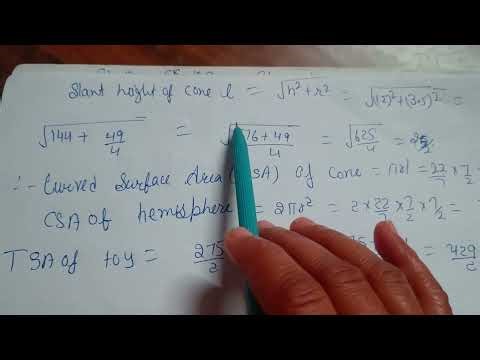 Slant height of cone l = √h²+r² = √(12)²+(3.5)² =
√144 + 49/4 = √576+49/4 = √625/4 = 25/2
∴ - Curved Surface Area (CSA) of Cone = πrl = 22/7 × 7/2 ×
CSA of hemisphere = 2πr² = 2 × 22/7 × 7/2 × 7/2 =
TSA of toy = 275/2 = 429/2